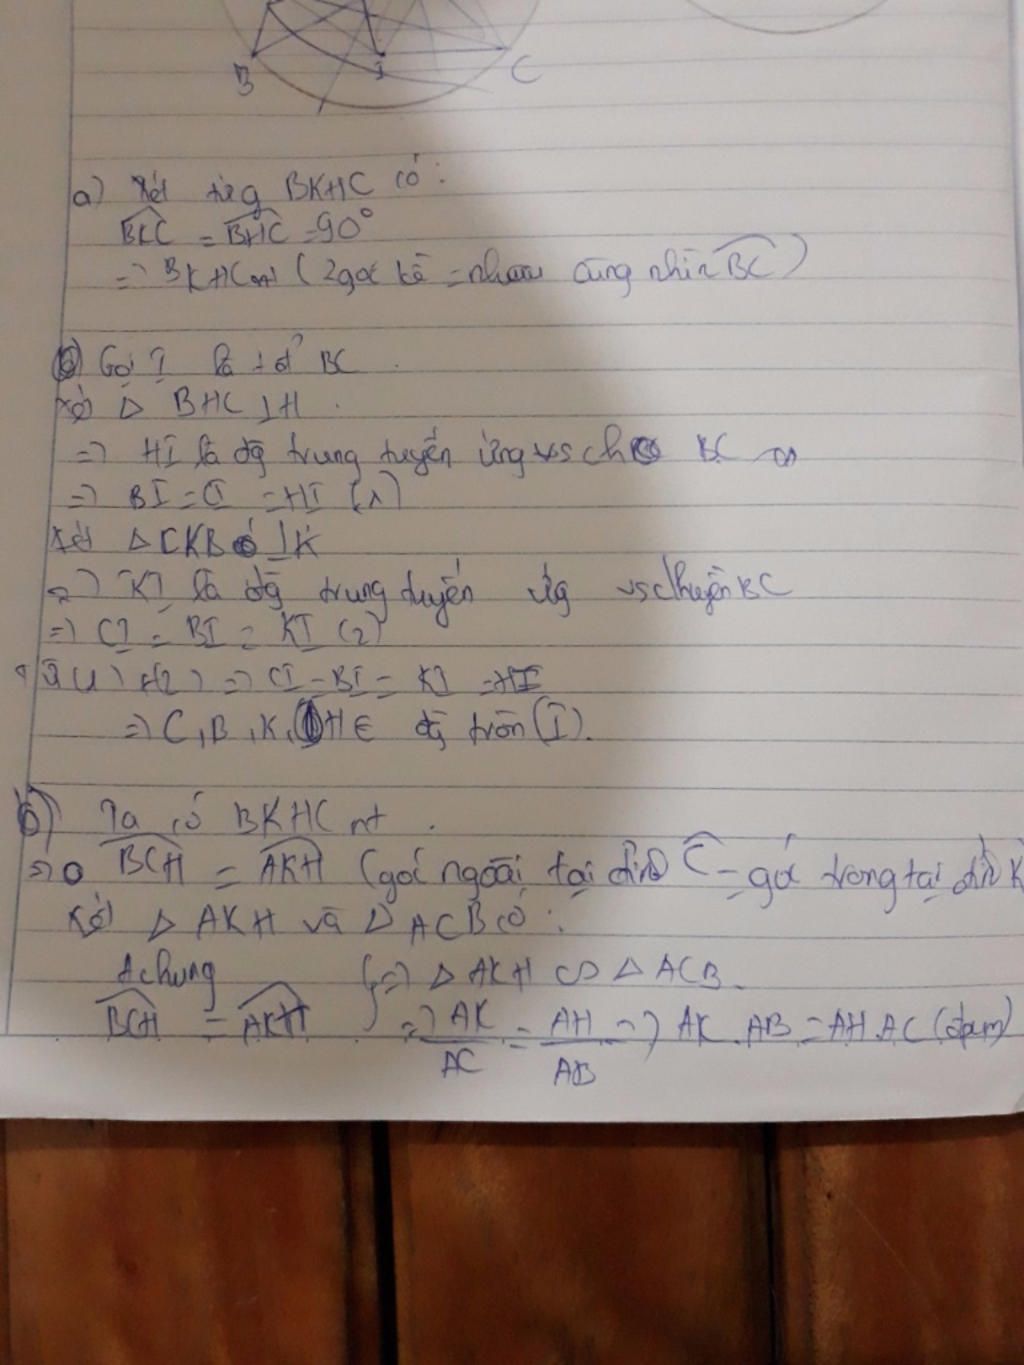 B I C
a) Xét tứg BKHC có:
BKC = BHC = 90°
=> BKHC nt (2 góc kề = nhau cùng nhìn BC)
Gọi I là t đ' BC
Xét Δ BHC ⊥ H
=> HI là đg trung tuyến ứng vs ch BC
=> BI = CI = HI (1)
Xét Δ CKB ⊥ K
=> KI là đg trung tuyến ứg vs c huyền BC
=> CI = BI = KI (2)
(1) + (2) => CI = BI = KI = HI
=> C, B, K, H ∈ đg tròn (I).
b) Ta có BKHC nt.
=> BCH = AKH (góc ngoài tại đỉnh C = góc trong tại đỉnh K
Xét Δ AKH và Δ ACB có:
A chung } => Δ AKH ∽ Δ ACB.
BCH = AKH => AK/AC = AH/AB => AK . AB = AH . AC (đpcm)